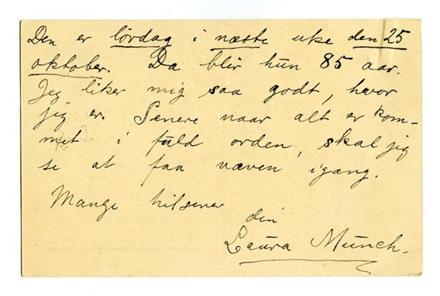 Den er lørdag i næste uke den 25
oktober. Da blir hun 85 aar.
Jeg liker mig saa godt, hvor
jeg er. Senere naar alt er kom-
met i fuld orden, skal jeg
se at faa væven igang.
Mange hilsener
din
Laura Munch.